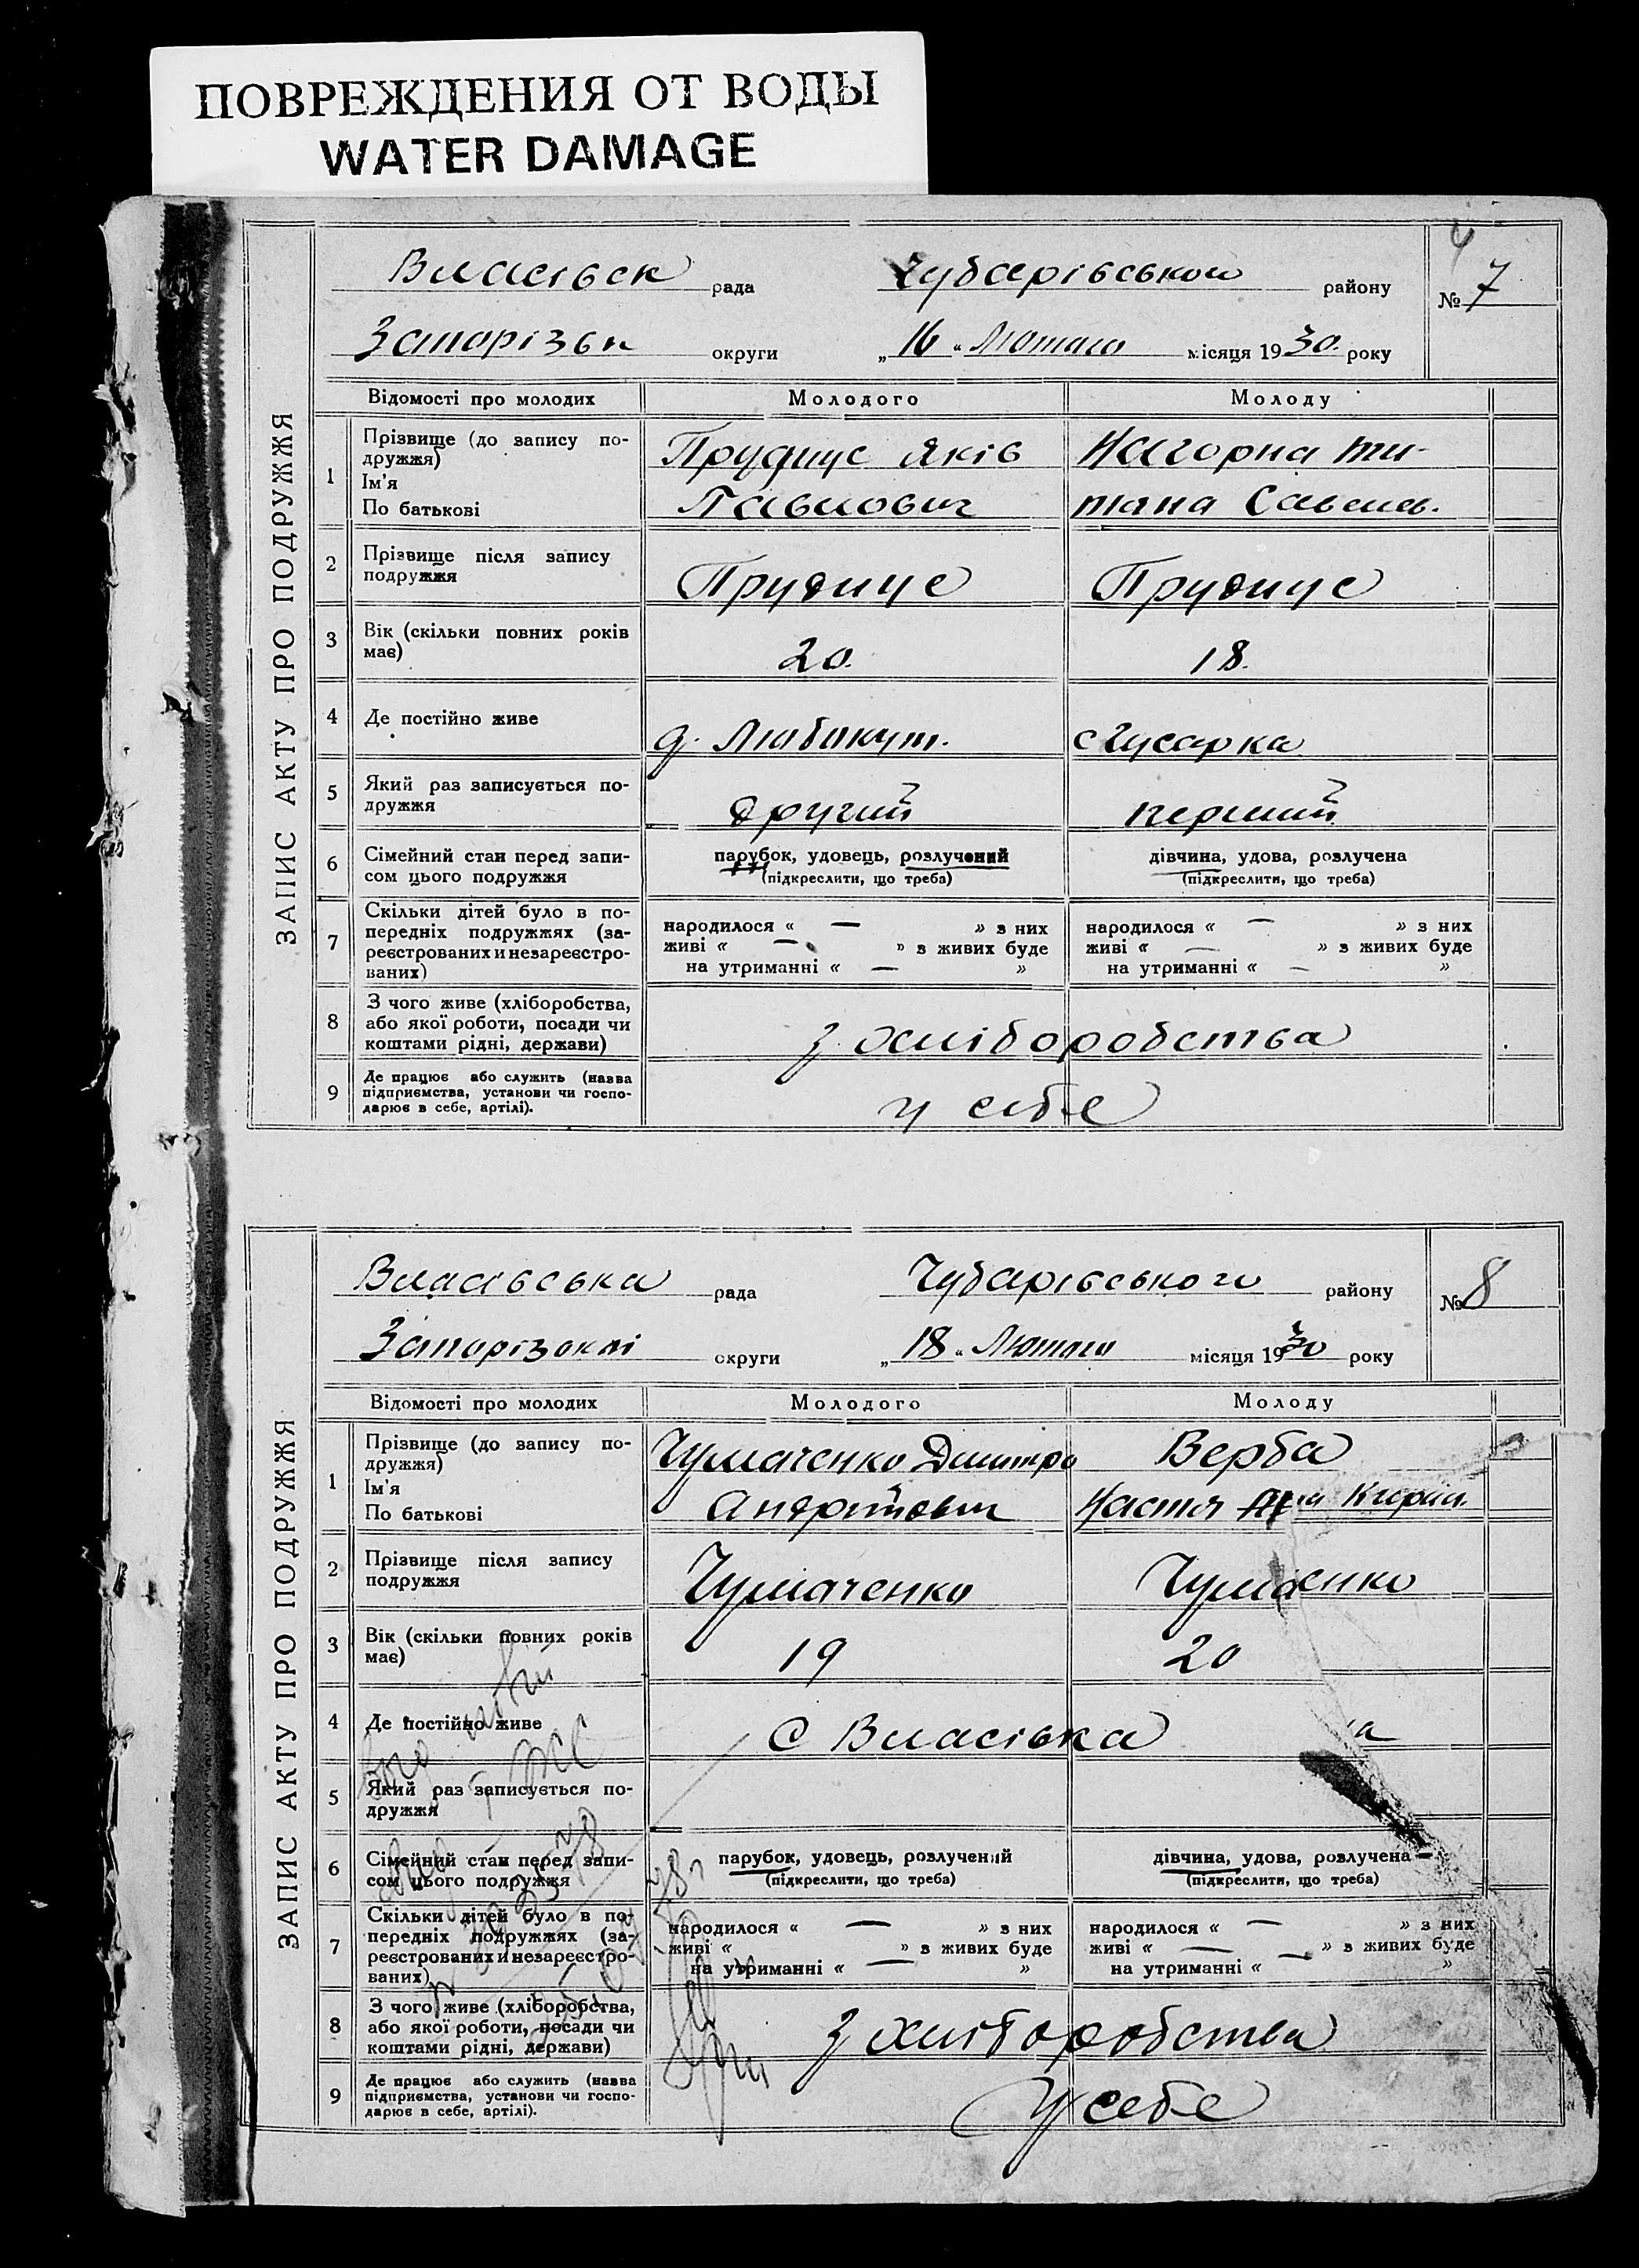 ПОВРЕЖДЕНИЯ ОТ ВОДЫ
WATER DAMAGE
4
ЗАПИС АКТУ ПРО ПОДРУЖЖЯ
Власівск рада Чубарівського району № 7
Запорізьк округи „16„ Лютого місяця 1930. року
Відомості про молодих Молодого Молоду
1 Прізвище (до запису по-
дружжя)
Ім'я
По батькові
Прудиус Яків
Павлович
Нагорна Ти-
тяна Савелев.
2 Прізвище після запису
подружжя
Прудиус Прудиус
3 Вік (скільки повних років
має)
20. 18.
4 Де постійно живе д. Любикут. с Гусарка
5 Який раз записується по-
дружжя
другий перший
6 Сімейний стан перед запи-
сом цього подружжя
парубок, удовець, розлучений
(підкреслити, що треба)
дівчина, удова, розлучена
(підкреслити, що треба)
7 Скільки дітей було в по-
передніх подружжях (за-
реєстрованих и незареєстро-
ваних)
народилося « — » з них
живі « — » з живих буде
на утриманні « — »
народилося « — » з них
живі « — » з живих буде
на утриманні « — »
8 З чого живе (хліборобства,
або якої роботи, посади чи
коштами рідні, держави)
з хліборобства
9 Де працює або служить (назва
підприємства, установи чи госпо-
дарює в себе, артілі).
у себе
ЗАПИС АКТУ ПРО ПОДРУЖЖЯ
Власівська рада Чубарівського району № 8
Запорізокої округи „18„ Лютого місяця 1930 року
Відомості про молодих Молодого Молоду
1 Прізвище (до запису по-
дружжя)
Ім'я
По батькові
Чумаченко Дмитро
Андрійович
Верба
Настя
2 Прізвище після запису
подружжя
Чумаченко Чумаенко
3 Вік (скільки повних років
має)
19 20
4 Де постійно живе С Власівка
5 Який раз записується по-
дружжя
6 Сімейний стан перед запи-
сом цього подружжя
парубок, удовець, розлучений
(підкреслити, що треба)
дівчина, удова, розлучена
(підкреслити, що треба)
7 Скільки дітей було в по-
передніх подружжях (за-
реєстрованих и незареєстро-
ваних)
народилося « — » з них
живі « » з живих буде
на утриманні « — »
народилося « — » з них
живі « — » з живих буде
на утриманні « — »
8 З чого живе (хліборобства,
або якої роботи, посади чи
коштами рідні, держави)
з хліборобства
9 Де працює або служить (назва
підприємства, установи чи госпо-
дарює в себе, артілі).
у себе